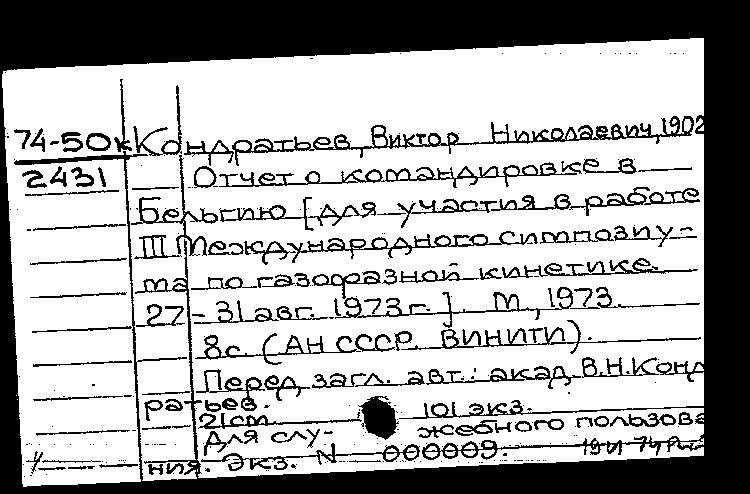 74-50к Кондратьев, Виктор Николаевич, 1902
2431 Отчет о командировке в
Бельгию [для участия в работе
III Международного симпозиу-
ма по газофазной кинетике.
27-31 авг. 1973 г.]. М., 1973.
8с. (АН СССР. ВИНИТИ).
Перед загл. авт.: акад. В.Н. Конд
ратьев.
21cm. 101 экз.
Для слу- жебного пользова
ния. Экз. N 000009.